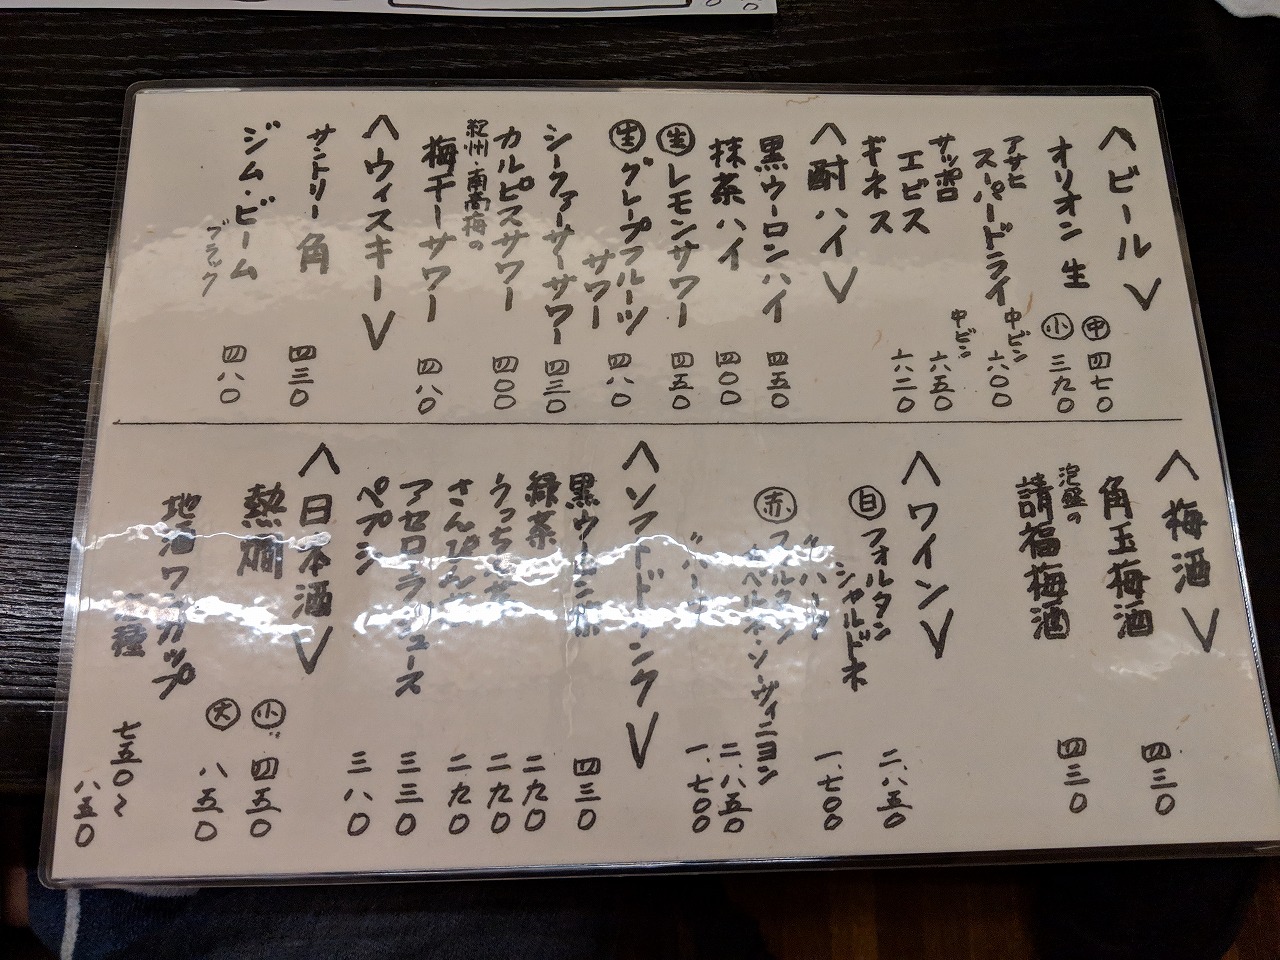 <ビール>
オリオン 生
㊥ 四七〇
㊙小 三九〇
アサヒ
スーパードライ
中ビン
六〇〇
サッポロ
エビス
中ビン
六五〇
ギネス
六二〇
<酎ハイ>
黒ウーロンハイ 四五〇
抹茶ハイ 四〇〇
生レモンサワー 四五〇
生グレープフルーツ
サワー 四八〇
シークァーサーサワー 四三〇
カルピスサワー 四〇〇
紀州・南高梅の
梅干しサワー 四八〇
<ウィスキー>
サントリー角 四三〇
ジム・ビーム
ブラック 四八〇
<梅酒>
角玉梅酒 四三〇
泡盛の
請福梅酒 四三〇
<ワイン>
白 フォルタン
シャルドネ 二、八五〇
〃ハーフ 一、七〇〇
赤 フォルタン
カベルネ・ソーヴィニヨン 二、八五〇
〃ハーフ 一、七〇〇
<ソフトドリンク>
黒ウーロン茶 四三〇
緑茶 二九〇
うっちん茶 二九〇
さんぴん茶 二九〇
アセロラジュース 三三〇
ペプシ 三八〇
<日本酒>
熱燗
小 四五〇
大 八五〇
地酒ワンカップ
種
七五〇～
八五〇